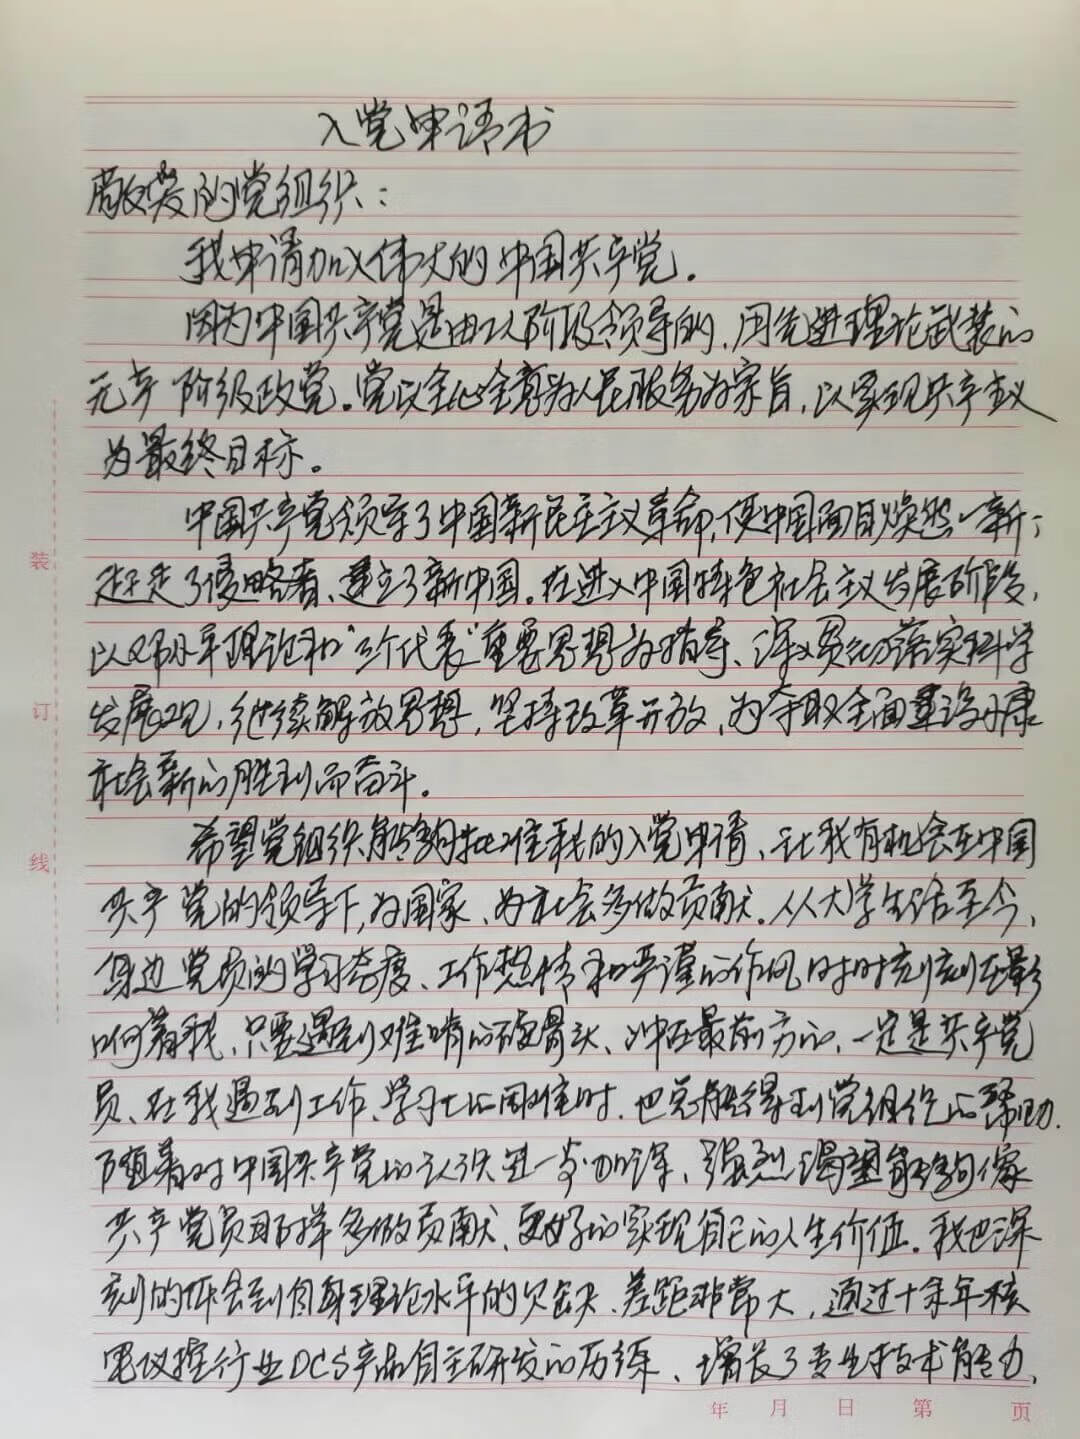 入党申请书
敬爱的党组织：
我申请加入伟大的中国共产党。
因为中国共产党是由工人阶级领导的，用先进理论武装的
无产阶级政党。党以全心全意为人民服务为宗旨，以实现共产主义
为最终目标。
中国共产党领导了中国新民主主义革命，使中国面目焕然一新；
赶走了侵略者、建立了新中国。在进入中国特色社会主义发展阶段，
以邓小平理论和“三个代表”重要思想为指导、深入贯彻落实科学
发展观，继续解放思想，坚持改革开放，为夺取全面建设小康
社会新的胜利而奋斗。
希望党组织能够批准我的入党申请、让我有机会在中国
共产党的领导下，为国家、为社会多做贡献。从大学生活至今，
身边党员的学习态度、工作热情和严谨的作风时时刻刻在影
响着我、只要遇到难啃的硬骨头、冲在最前方的、一定是共产党
员、在我遇到工作、学习上的困难时，也总能得到党组织的帮助。
随着对中国共产党的认识进一步加深、强烈渴望能够像
共产党员那样多做贡献、更好的实现自己的人生价值。我也深
刻的体会到自身理论水平的欠缺、差距非常大，通过十余年核
电仪控行业DCS产品自主研发的历练、增长了专业技术能力，
装
订
线
年 月 日 第 页